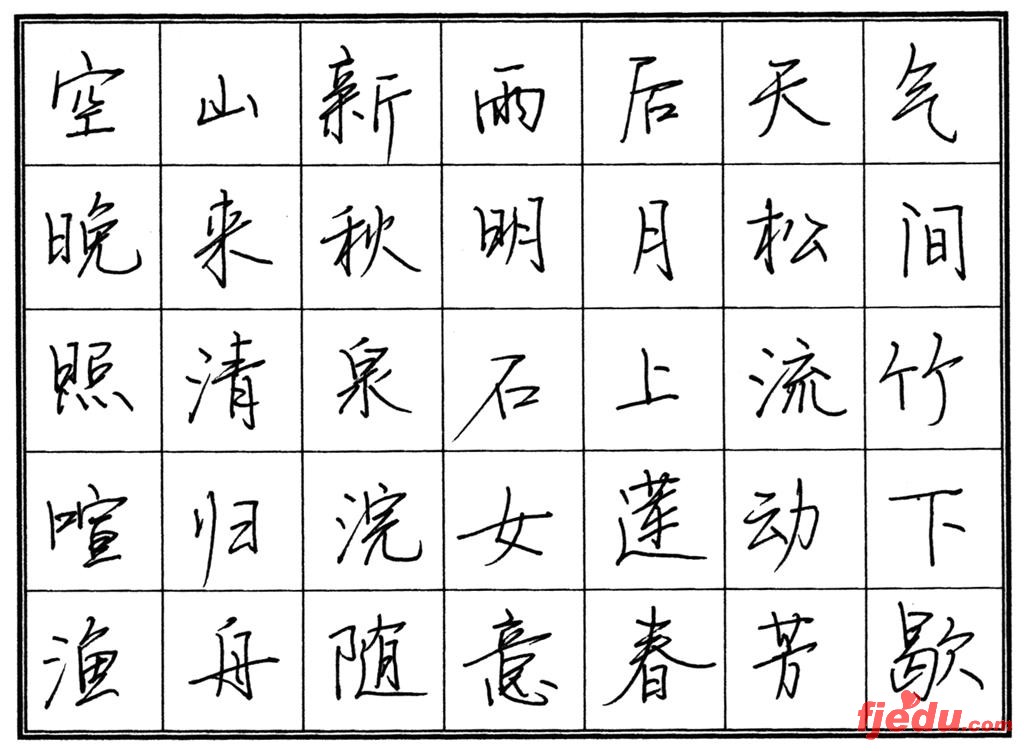 空山新雨后天气
晚来秋明月松间
照清泉石上流竹
喧归浣女莲动下
渔舟随意春芳歇
fjedu.com